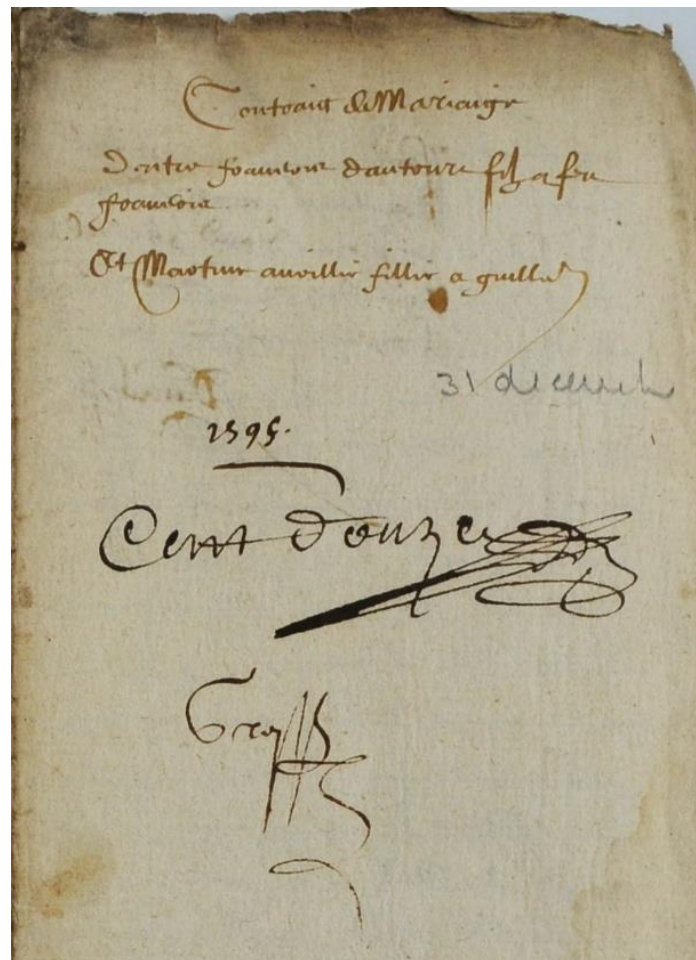 Contraict de Mariaige
D'entre francois dantoure filz a feu
francois
Et Martine aveillie fillie a guilla
31 decemb
1595.
Cent douze
Gross